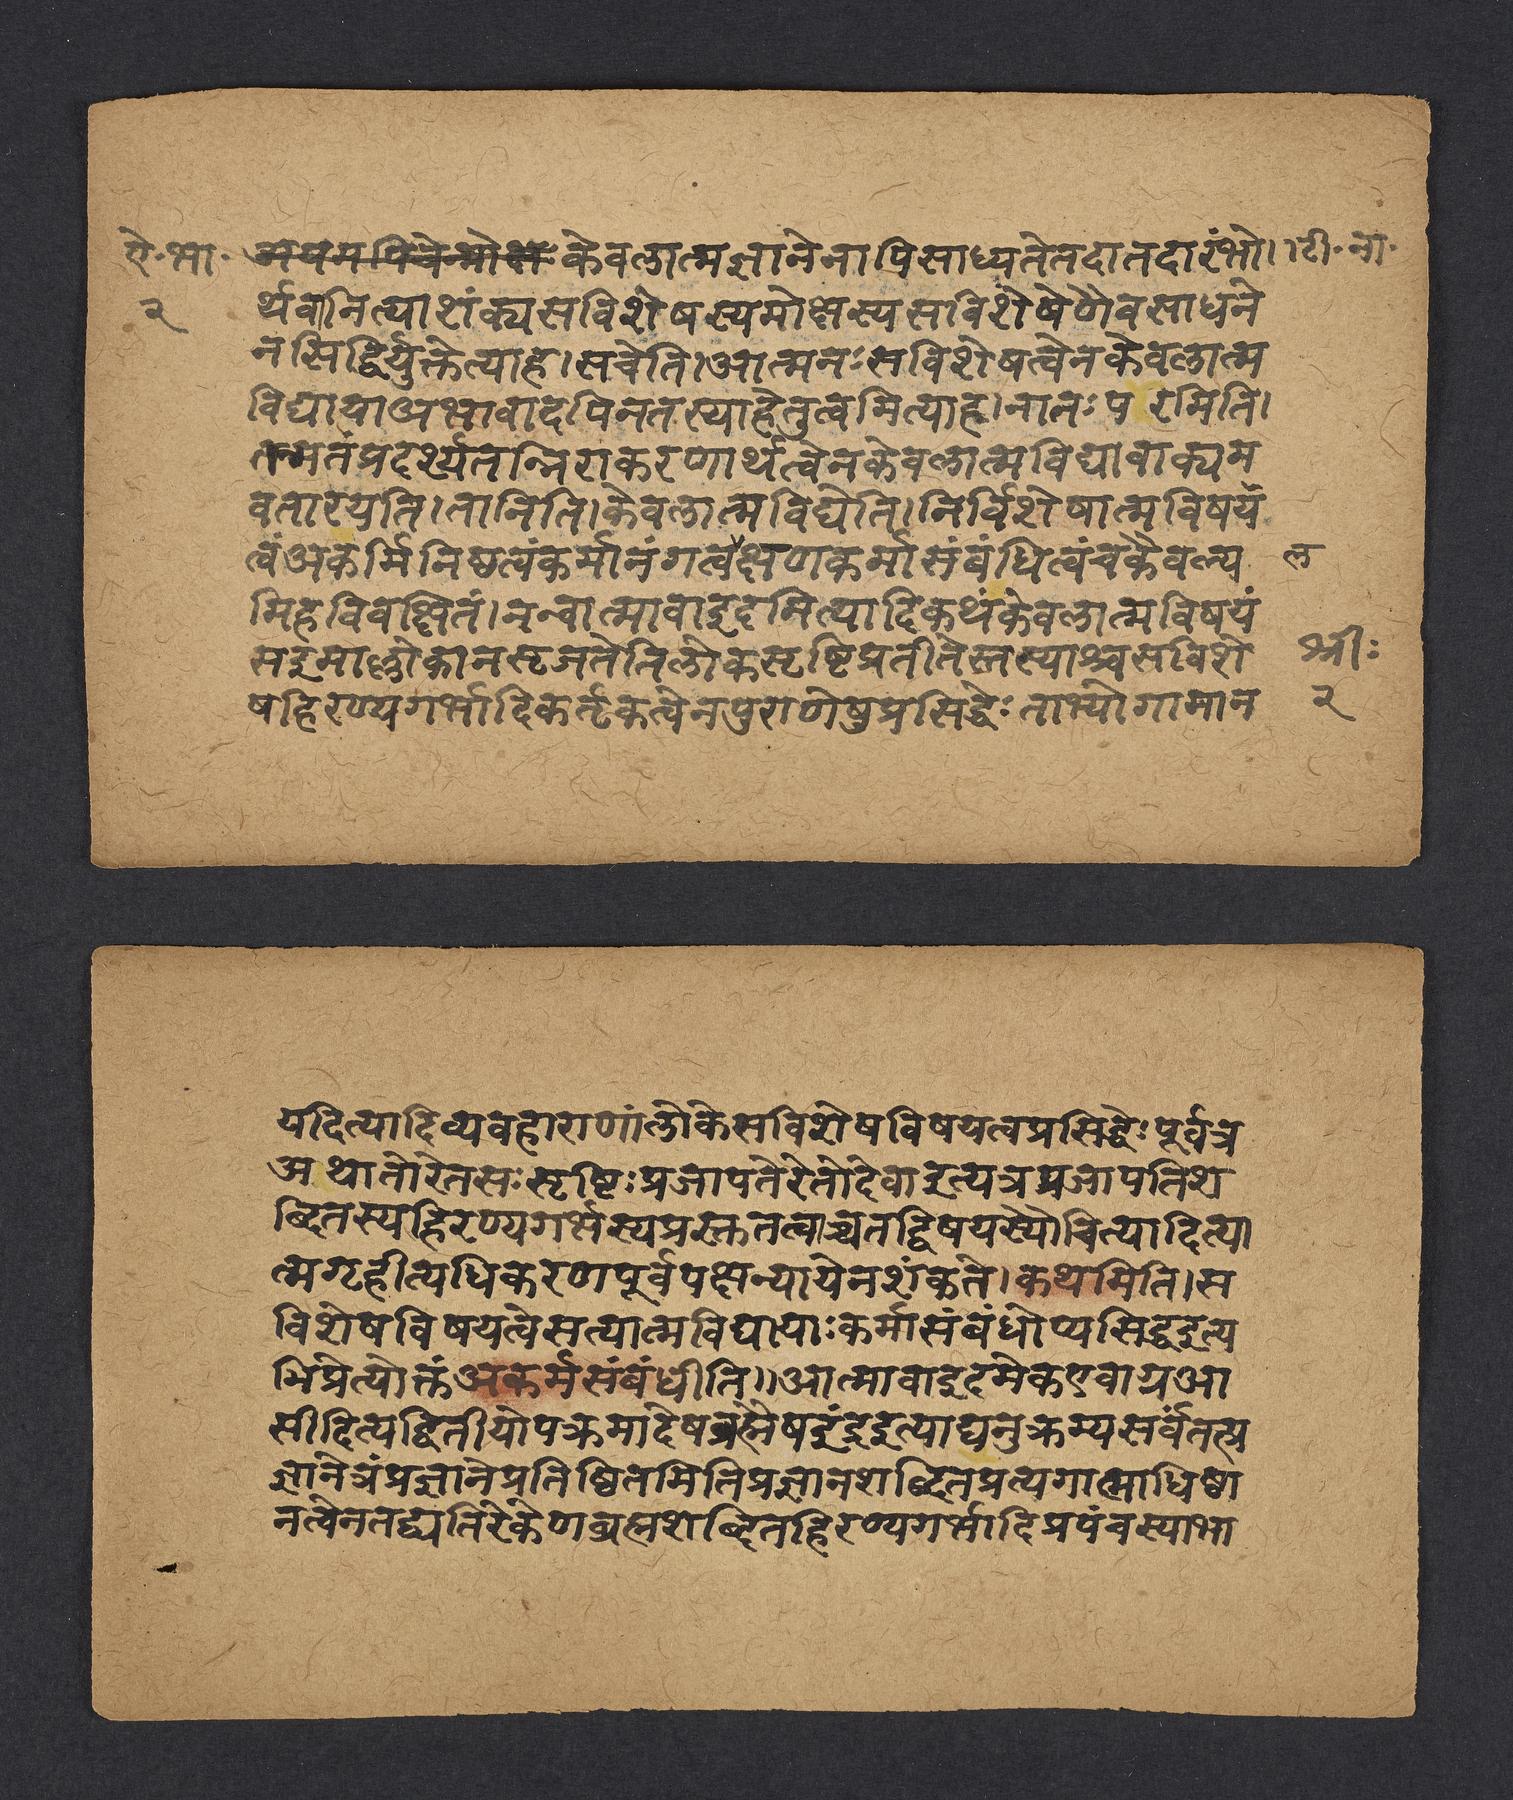 ऐ·भा·
२
अयमपिचेन्मोक्षः केवलात्मज्ञानेनापिसाध्यतेतदातदारंभो।।
टी·ना·
र्थवानित्याशंक्यसविशेषस्यमोक्षस्यसविशेषेणैवसाधने
नसिद्धिर्युक्तेत्याह।सचेति।आत्मनःसविशेषत्वेनकेवलात्म
विद्यायाअभावादपिनतस्याहेतुत्वमित्याह।नातःपरमिति।
तन्मतंप्रदर्श्यतन्निराकरणार्थत्वेनकेवलात्मविद्यावाक्यम
वतारयति।तानिति।केवलात्मविद्येति।निर्विशेषात्मविषय
त्वंअकर्मिनिष्ठत्वंकर्मानंगत्वक्षणकर्मासंबंधित्वंचकैवल्य
ल
मिहविवक्षितं।नन्वात्मावाइदमित्यादिकथंकेवलात्मविषयं
सइमाल्लोकानसृजतेतिलोकसृष्टिप्रतीतेस्तस्याश्चसविशे
श्रीः
षहिरण्यगर्भादिकर्तृकत्वेनपुराणेषुप्रसिद्धेःताभ्योगामान
२
यदित्यादिव्यवहाराणांलोकेसविशेषविषयत्वप्रसिद्धेःपूर्वत्र
अथातोरेतसःसृष्टिःप्रजापतेरेतोदेवाइत्यत्रप्रजापतिश
ब्दितस्यहिरण्यगर्भस्यप्रस्तुतत्वाच्चतद्विषयस्यौचित्यादित्या
त्मगृहीत्यधिकरणपूर्वपक्षन्यायेनशंकते।कथमिति।स
विशेषविषयत्वेसत्यात्मविद्यायाःकर्मासंबंधोप्यसिद्धइत्य
भिप्रेत्योक्तंअकर्मसंबंधीति।।आत्मावाइदमेकएवाग्रआ
सीदित्यद्वितीयोपक्रमादेषब्रह्मैषइंद्रइत्याद्यनुक्रम्यसर्वंतत्प्र
ज्ञानेत्रंप्रज्ञानेप्रतिष्ठितमितिप्रज्ञानशब्दितप्रत्यगात्माधिष्ठा
नत्वेनतद्व्यतिरेकेणब्रह्मशब्दितहिरण्यगर्भादिप्रपंचस्याभा